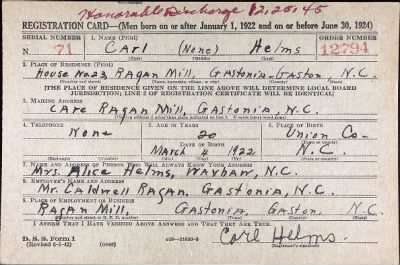 Honorable Discharge 12.20.45
REGISTRATION CARD—(Men born on or after January 1, 1922 and on or before June 30, 1924)
SERIAL NUMBER 1. NAME (Print) ORDER NUMBER
N 71 Carl (None) Helms 12794
(First) (Middle) (Last)
2. PLACE OF RESIDENCE (Print)
House No 23, Ragan Mill, Gastonia-Gaston N.C.
[THE PLACE OF RESIDENCE GIVEN ON THE LINE ABOVE WILL DETERMINE LOCAL BOARD
JURISDICTION; LINE 2 OF REGISTRATION CERTIFICATE WILL BE IDENTICAL]
3. MAILING ADDRESS
Care Ragan Mill, Gastonia, N.C.
4. TELEPHONE 5. AGE IN YEARS 6. PLACE OF BIRTH
None 20 Union Co-
DATE OF BIRTH
March 4 1922 N.C.
(Exchange) (Number) (Mo.) (Day) (Yr.) (State or country)
7. NAME AND ADDRESS OF PERSON WHO WILL ALWAYS KNOW YOUR ADDRESS
Mrs. Alice Helms, Waxhaw, N.C.
8. EMPLOYER'S NAME AND ADDRESS
Mr. Caldwell Ragan, Gastonia, N.C.
9. PLACE OF EMPLOYMENT OR BUSINESS
Ragan Mill, Gastonia, Gaston, N.C.
I AFFIRM THAT I HAVE VERIFIED ABOVE ANSWERS AND THAT THEY ARE TRUE.
D. S. S. Form 1
(Revised 6-1-42) (over) Carl Helms.
(Registrant's signature)